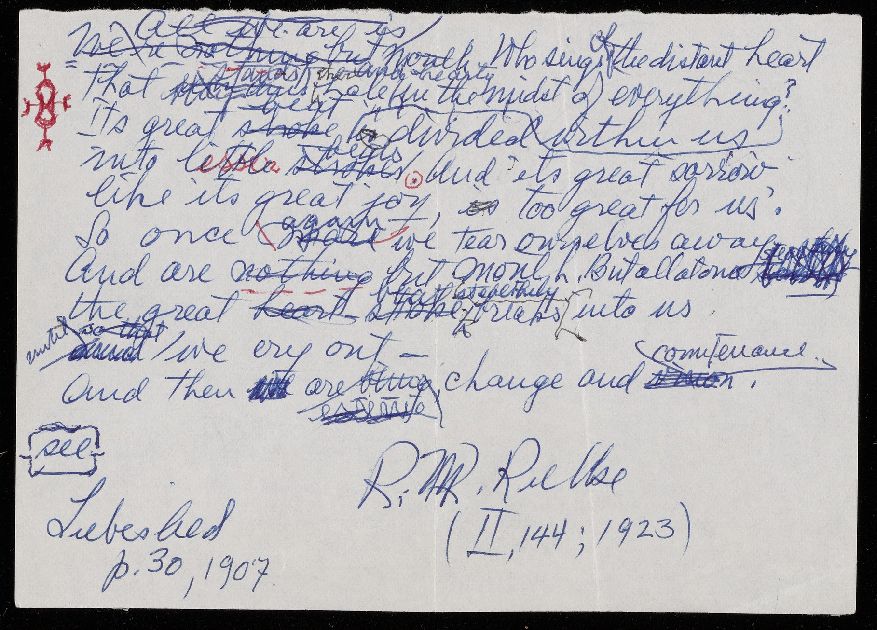 All we are is
We're nothing but mouth. Who sings the distant heart
That stands whole in the midst of everything?
Its great beat is divided within us
into little beats. And its great sorrow
like its great joy, is too great for us.
So once again we tear ourselves away
And are nothing but mouth. But all at once
the great heart beat stealthily breaks into us
until so that we cry out —
And then are being, change and countenance.
see
R. M. Rilke
(II, 144; 1923)
Liebeslied
p. 30, 1907